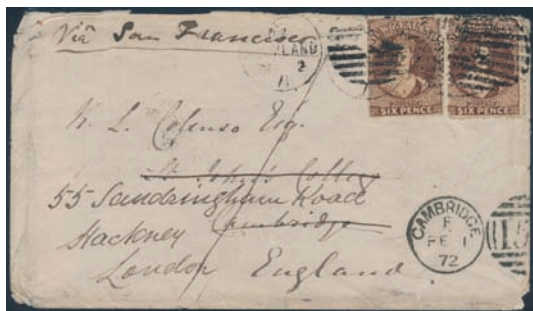 Via San Francisco
LAND
2
SIX PENCE
SIX PENCE
W. L. Colenso Esq.
St. John's College
55 Sandringham Road
Hackney Cambridge
London England
CAMBRIDGE
F
FE 1
72
15